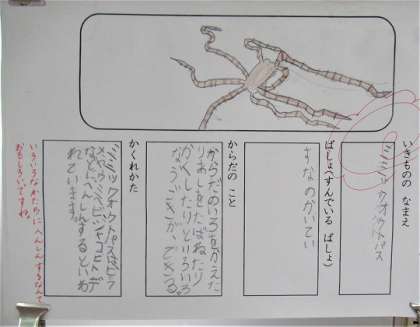 いきものの なまえ
ミミックオクトパス
ばしょ(すんでいる ばしょ)
すなのかいてい
からだの こと
からだのいろをかえた
りあしをたばねたり
かくしたりといろいろ
なうごきができる。
かくれかた
ミミックオクトパスはヒラ
メやウミヘビシャコヒトデ
などにへんしんするといわ
れています。
いろいろなかたちに へんしんするなんて
おもしろいですね。